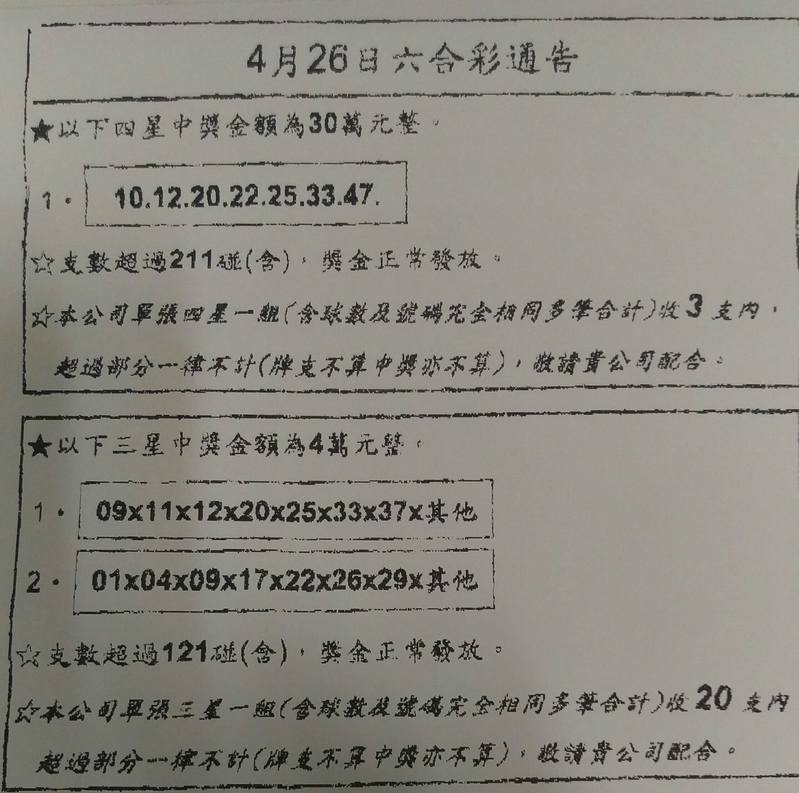 4月26日六合彩通告
★以下四星中獎金額為30萬元整。
1. 10.12.20.22.25.33.47.
☆支數超過211碰(含)，獎金正常發放。
☆本公司單張四星一組(含球數及號碼完全相同多筆合計)收3支內，
超過部分一律不計(牌支不算中獎亦不算)，敬請貴公司配合。
★以下三星中獎金額為4萬元整。
1. 09x11x12x20x25x33x37x其他
2. 01x04x09x17x22x26x29x其他
☆支數超過121碰(含)，獎金正常發放。
☆本公司單張三星一組(含球數及號碼完全相同多筆合計)收20支內
超過部分一律不計(牌支不算中獎亦不算)，敬請貴公司配合。